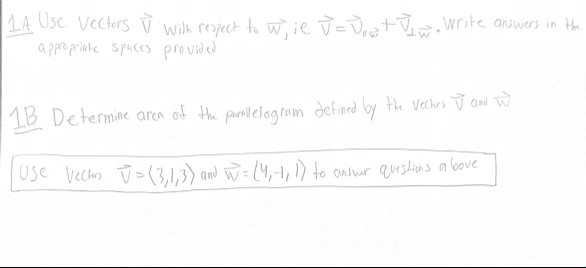 1A Use Vectors v⃗ with respect to w⃗, ie v⃗ = v⃗∥w⃗ + v⃗⊥w⃗. Write answers in the
appropriate spaces provided
1B Determine area of the parallelogram defined by the vectors v⃗ and w⃗
Use Vectors v⃗ = ⟨3,1,3⟩ and w⃗ = ⟨4,-1,1⟩ to answer questions above